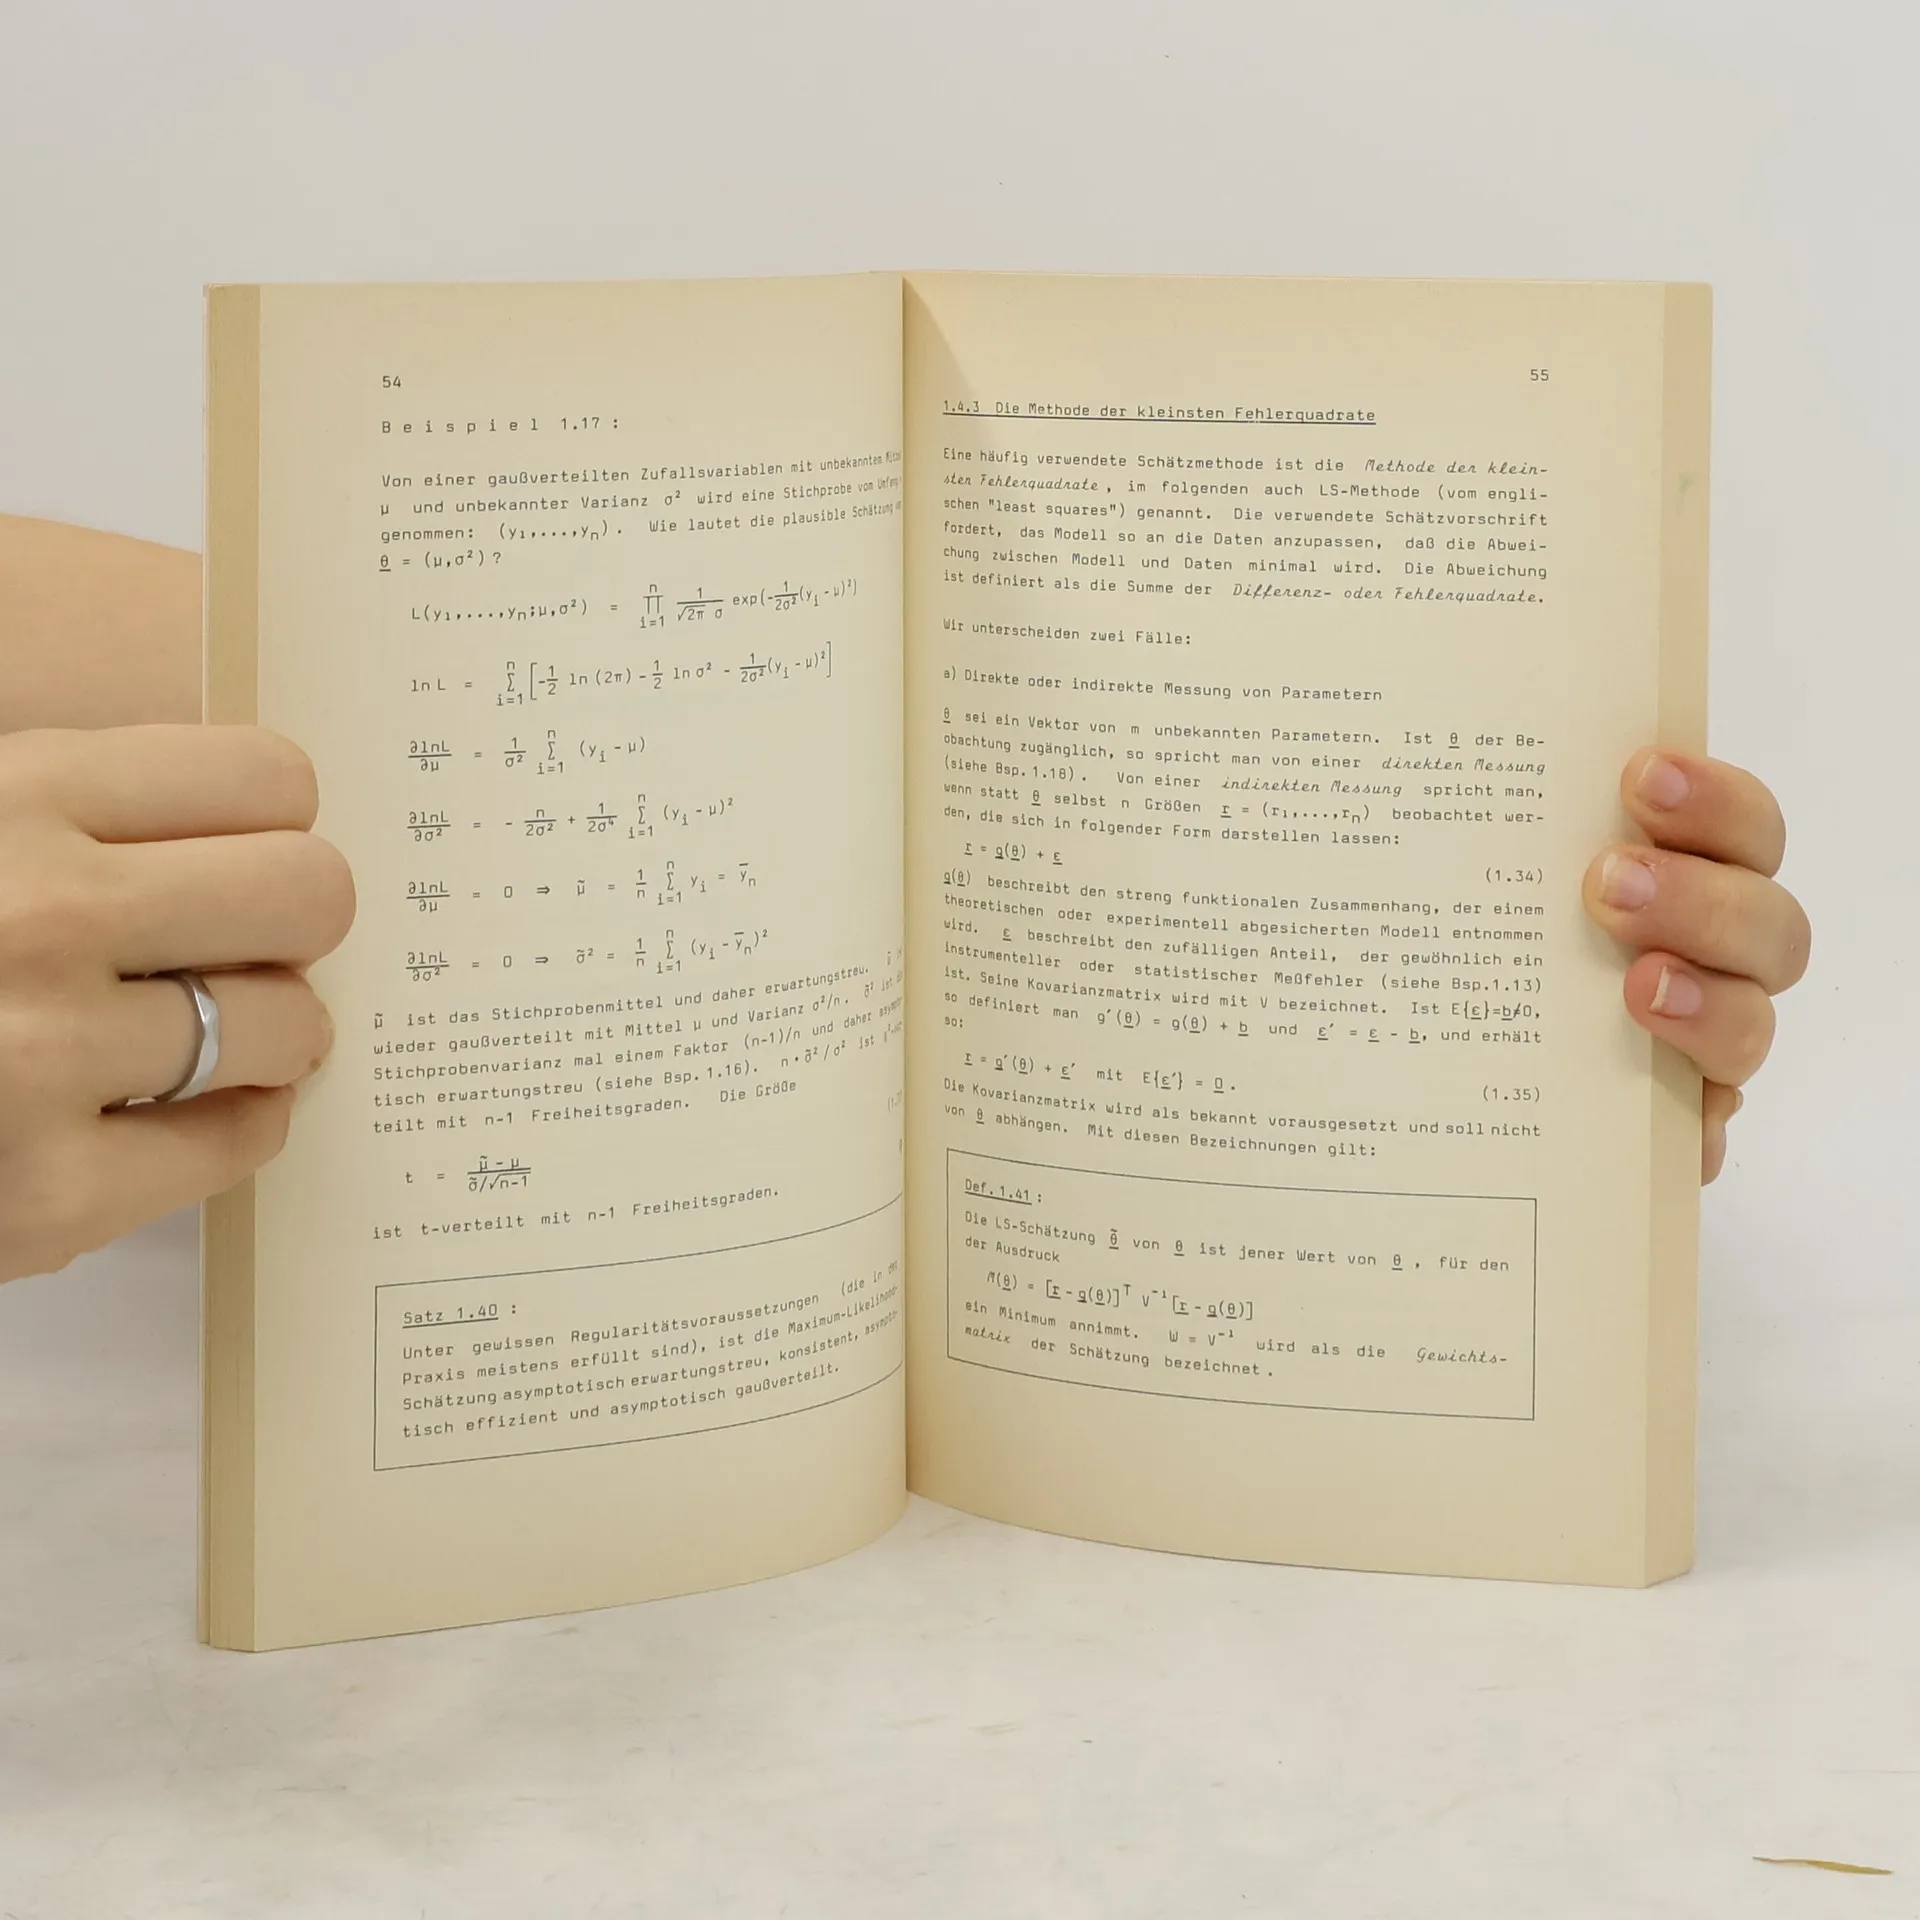 54
Beispiel 1.17 :
Von einer gaußverteilten Zufallsvariablen mit unbekanntem
μ und unbekannter Varianz σ² wird eine Stichprobe vom Umfang
genommen: (y₁,...,yₙ). Wie lautet die plausible Schätzung
θ = (μ,σ²) ?
L(y₁,...,yₙ;μ,σ²) = ∏ᵢ₌₁ⁿ 1/(√2π σ) exp(-1/(2σ²)(yᵢ - μ)²)
ln L = Σᵢ₌₁ⁿ [-1/2 ln (2π) - 1/2 ln σ² - 1/(2σ²)(yᵢ - μ)²]
∂lnL/∂μ = 1/σ² Σᵢ₌₁ⁿ (yᵢ - μ)
∂lnL/∂σ² = - n/(2σ²) + 1/(2σ⁴) Σᵢ₌₁ⁿ (yᵢ - μ)²
∂lnL/∂μ = 0 ⇒ μ̃ = 1/n Σᵢ₌₁ⁿ yᵢ = y̅ₙ
∂lnL/∂σ² = 0 ⇒ σ̃² = 1/n Σᵢ₌₁ⁿ (yᵢ - y̅ₙ)²
μ̃ ist das Stichprobenmittel und daher erwartungstreu. μ̃
wieder gaußverteilt mit Mittel μ und Varianz σ²/n. σ̃² ist
Stichprobenvarianz mal einem Faktor (n-1)/n und daher
tisch erwartungstreu (siehe Bsp. 1.16). n•σ̃²/σ² ist
teilt mit n-1 Freiheitsgraden. Die Größe
t = (μ̃ - μ)/(σ̃/√n-1)
ist t-verteilt mit n-1 Freiheitsgraden.
Satz 1.40 :
Unter gewissen Regularitätsvoraussetzungen (die in der
Praxis meistens erfüllt sind), ist die Maximum-Likelihood-
Schätzung asymptotisch erwartungstreu, konsistent, asympto-
tisch effizient und asymptotisch gaußverteilt.
55
1.4.3 Die Methode der kleinsten Fehlerquadrate
Eine häufig verwendete Schätzmethode ist die Methode der klein-
sten Fehlerquadrate, im folgenden auch LS-Methode (vom engli-
schen "least squares") genannt. Die verwendete Schätzvorschrift
fordert, das Modell so an die Daten anzupassen, daß die Abwei-
chung zwischen Modell und Daten minimal wird. Die Abweichung
ist definiert als die Summe der Differenz- oder Fehlerquadrate.
Wir unterscheiden zwei Fälle:
a) Direkte oder indirekte Messung von Parametern
θ sei ein Vektor von m unbekannten Parametern. Ist θ der Be-
obachtung zugänglich, so spricht man von einer direkten Messung
(siehe Bsp. 1.18). Von einer indirekten Messung spricht man,
wenn statt θ selbst n Größen r = (r₁,...,rₙ) beobachtet wer-
den, die sich in folgender Form darstellen lassen:
r = g(θ) + ε (1.34)
g(θ) beschreibt den streng funktionalen Zusammenhang, der einem
theoretischen oder experimentell abgesicherten Modell entnommen
wird. ε beschreibt den zufälligen Anteil, der gewöhnlich ein
instrumenteller oder statistischer Meßfehler (siehe Bsp.1.13)
ist. Seine Kovarianzmatrix wird mit V bezeichnet. Ist E{ε}=b≠0,
so definiert man g'(θ) = g(θ) + b und ε' = ε - b, und erhält
so:
r = g'(θ) + ε' mit E{ε'} = 0. (1.35)
Die Kovarianzmatrix wird als bekannt vorausgesetzt und soll nicht
von θ abhängen. Mit diesen Bezeichnungen gilt:
Def.1.41 :
Die LS-Schätzung θ̃ von θ ist jener Wert von θ, für den
der Ausdruck
M(θ) = [r - g(θ)]ᵀ V⁻¹ [r - g(θ)]
ein Minimum annimmt. W = V⁻¹ wird als die Gewichts-
matrix der Schätzung bezeichnet.